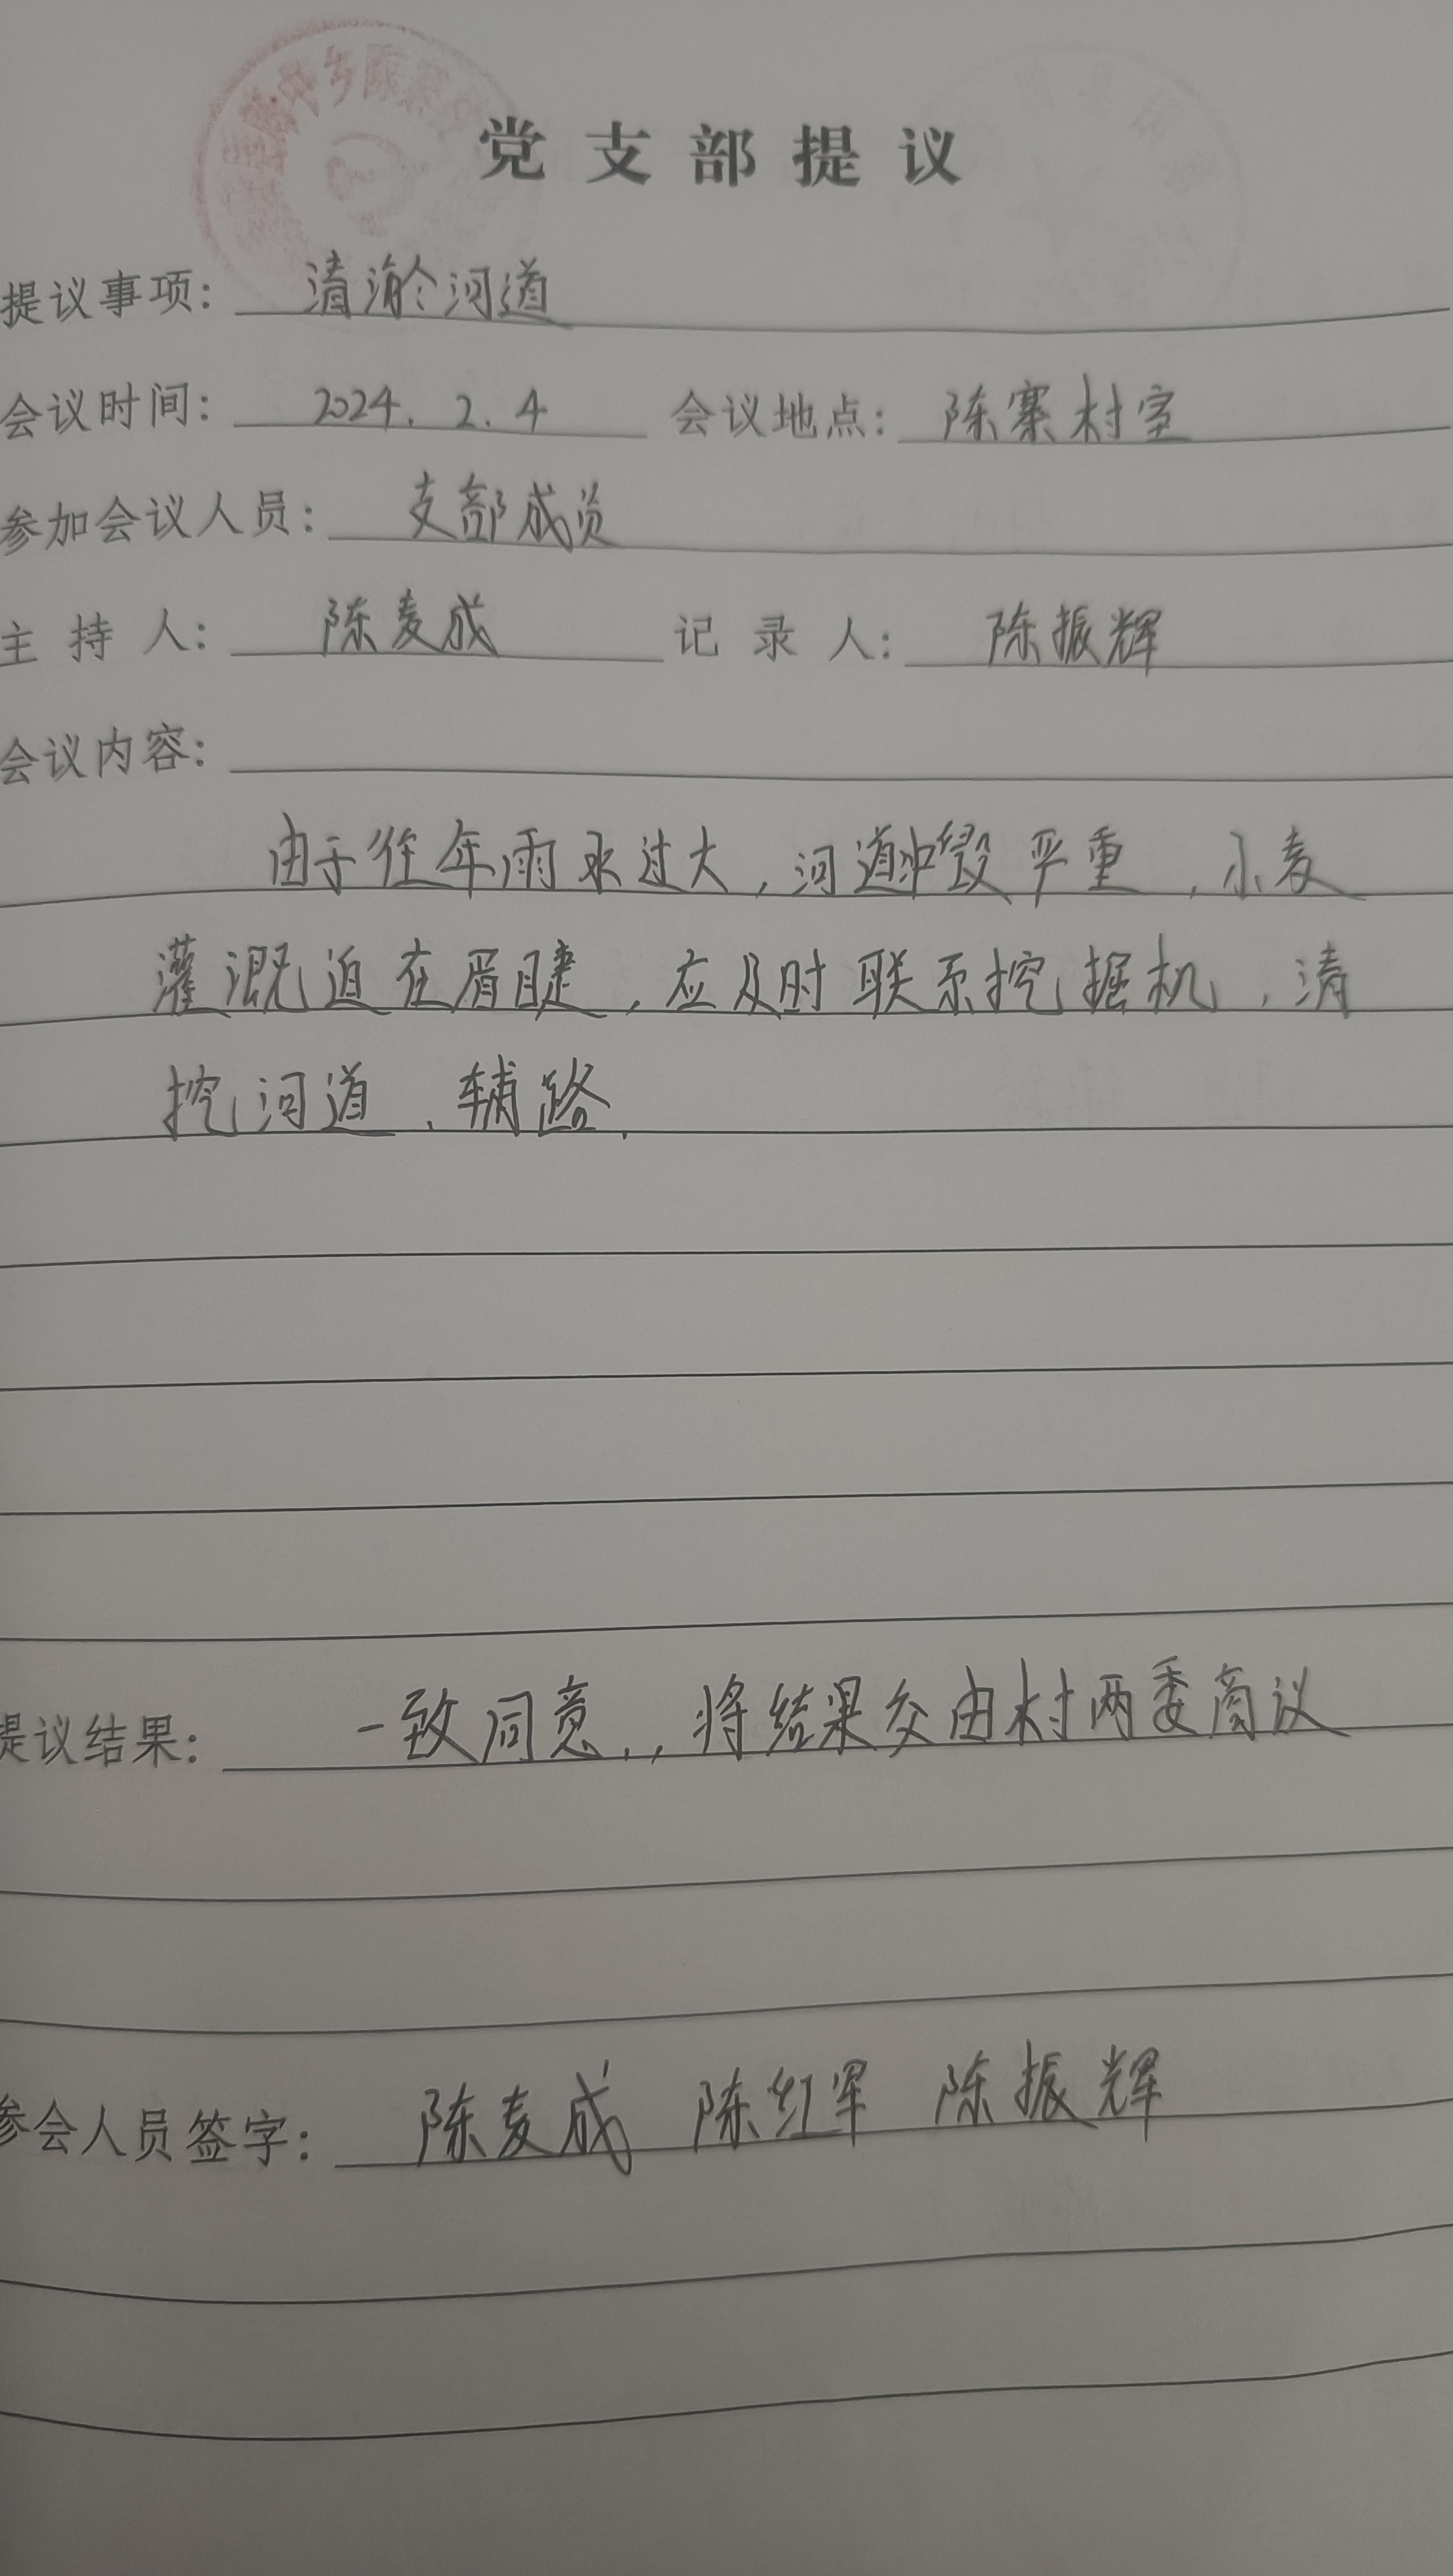 党支部提议
提议事项: 清淤河道
会议时间: 2024.2.4 会议地点: 陈寨村室
参加会议人员: 支部成员
主持人: 陈麦成 记录人: 陈振辉
会议内容:
由于往年雨水过大,河道冲毁严重,小麦
灌溉迫在眉睫,应及时联系挖掘机,清
挖河道、辅路.
提议结果: 一致同意.,将结果交由村两委商议
参会人员签字: 陈麦成 陈红军 陈振辉